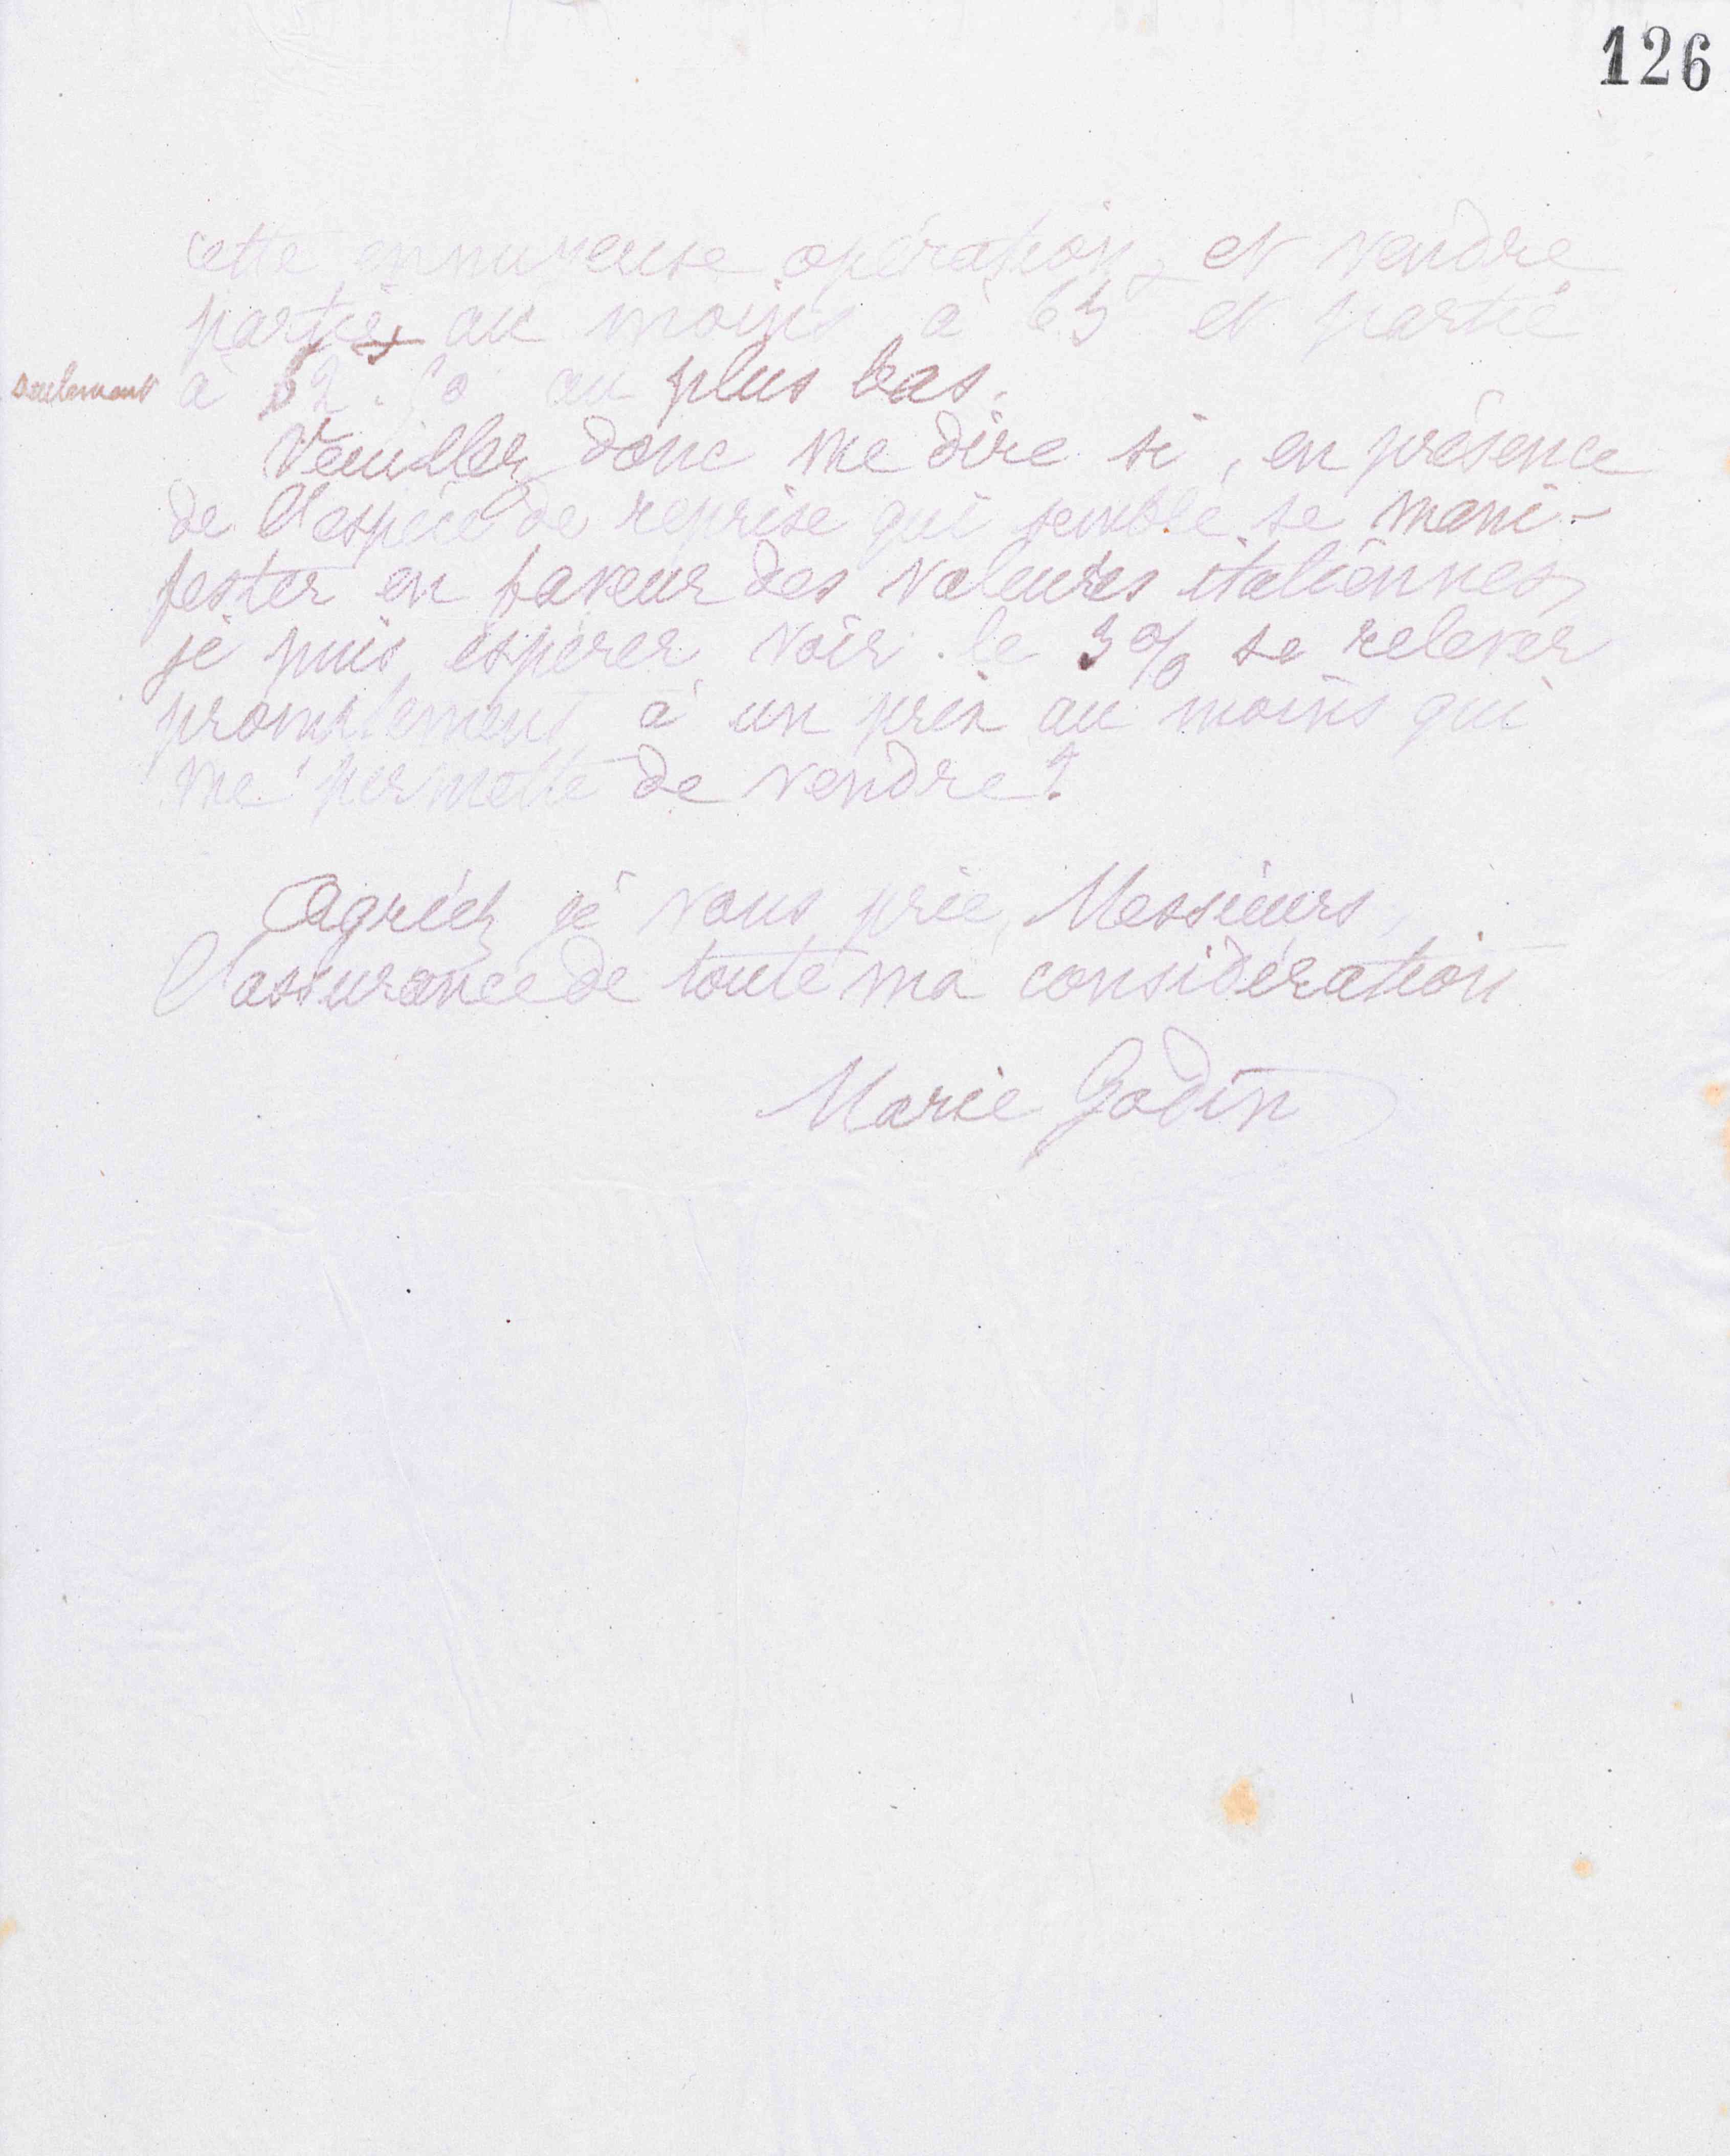 126
cette ennuyeuse opération, et vendre
partie + au moins à 63 et partie
seulement à 62.50 au plus bas.
Veuillez donc me dire si, en présence
de l'espèce de reprise qui semble se mani-
fester en faveur des valeurs italiennes,
je puis espérer voir le 3% se relever
promptement à un prix au moins qui
me permette de vendre ?
Agréez je vous prie, Messieurs,
l'assurance de toute ma considération
Marie Godin